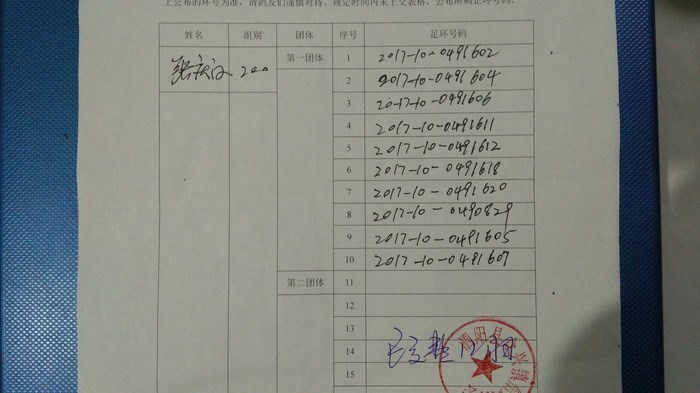 上公布的环号为准，请鸽友们谨慎对待。规定时间内未上交表格，公布所购证环号码。
姓名 组别 团体 序号 足环号码
张庆汉 200 第一团体 1 2017-10-0491602
2 2017-10-0491604
3 2017-10-0491606
4 2017-10-0491611
5 2017-10-0491612
6 2017-10-0491618
7 2017-10-0491620
8 2017-10-0490829
9 2017-10-0491605
10 2017-10-0491607
第二团体 11
12
13
14
15
泗阳县